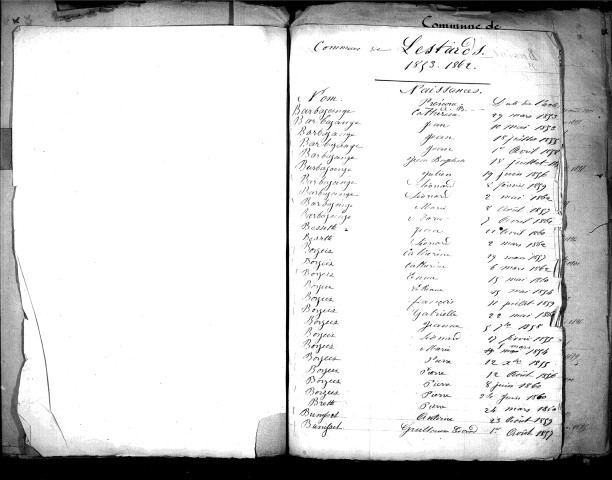 Commune de
Commune de Lestards.
1853-1862.
Naissances.
Nom. Prénom Date de l'acte
A-B.
Barbazange Catherine 29 mars 1853
Barbazange Jean 10 mai 1852
Barbazange Jean 18 juillet 1855
Barbazange Jean 1er Août 1858
Barbazange Jean Baptiste 18 juillet
Barbazange Julien 19 juin 1856
Barbazange Léonard 8 février 1859
Barbazange Léonard 2 mai 1862
Barbazange Marie 8 Août 1857
Barbazange 7 Avril 1860
Bassett Jean 11 Avril 1860
Léonard 2 mars 1862
Borzeix Catherine 19 mars 1857
Borzeix Catherine 6 mars 1862
Borzeix 15 mai 1860
Borzeix Etienne 25 mai 1856
Borzeix François 11 juillet 1859
Borzeix Gabrielle 22 mai 1862
Borzeix Jeanne 5 7bre 1858
Borzeix Léonard 17 février 1855
Borzeix Marie mars 1854
Borzeix Pierre 12 Xbre 1855
Borzeix Pierre 12 Août 1856
Borzeix Pierre 8 juin 1860
Borzeix Pierre 24 juin 1860
Brette Pierre 24 mars 1860
Bunisset Antoine 23 Août 1859
Bunisset Guillaume 1er Août 1857